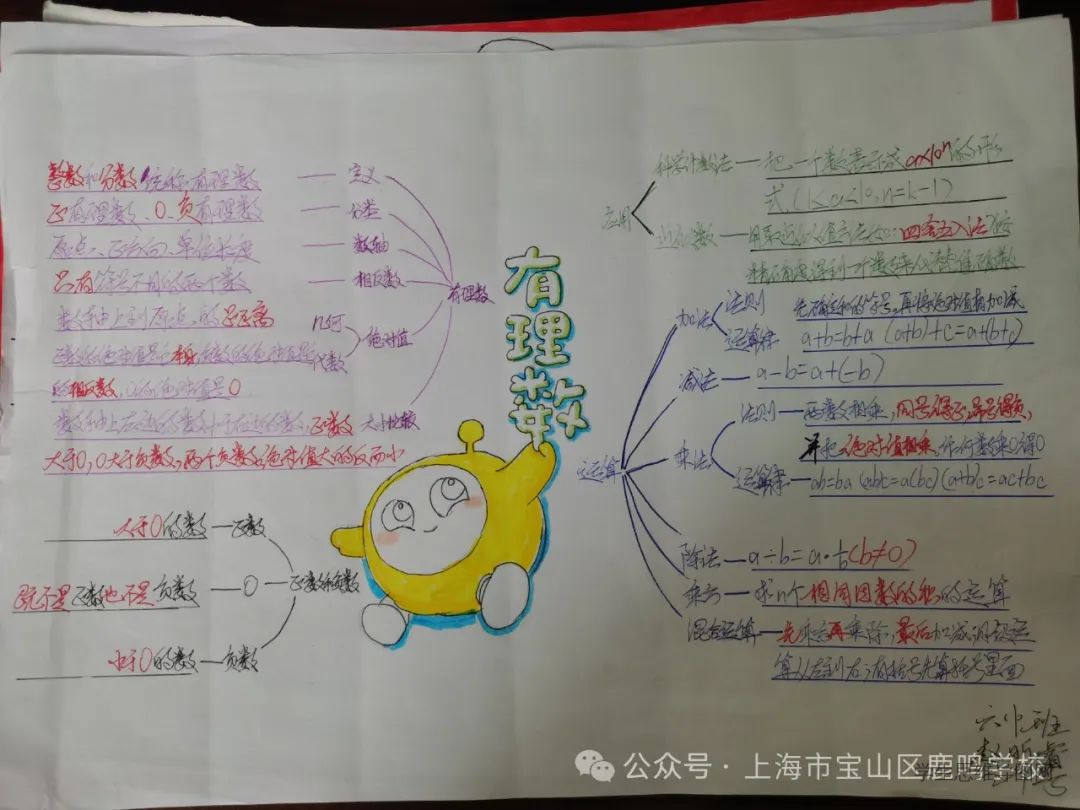 有理数
整数和分数统称有理数 — 定义
正有理数、0、负有理数 — 分类
原点、正方向、单位长度 — 数轴
只有符号不同的两个数 — 相反数
有理数
数轴上到原点的距离 几何
绝对值
正数的绝对值是它本身,负数的绝对值是它 代数
的相反数,0的绝对值是0
数轴上右边的数大于左边的数,正数 大小比较
大于0,0大于负数,两个负数,绝对值大的反而小
大于0的数 — 正数
既不是正数也不是负数 — 0 — 正数和负数
小于0的数 — 负数
应用
科学计数法 — 把一个数表示成a×10ⁿ的形
式,(1≤a<10,n=k-1)
近似数 — 四舍五入法
运算
加法 法则 先确定和的符号,再将绝对值相加减
运算律 a+b=b+a (a+b)+c=a+(b+c)
减法 — a-b=a+(-b)
乘法 法则 — 两数相乘,同号得正,异号得负,
并把绝对值相乘,任何数乘0得0
运算律 — ab=ba (ab)c=a(bc) (a+b)c=ac+bc
除法 — a÷b=a·1/b(b≠0)
乘方 — 求n个相同因数的积的运算
混合运算 — 先乘方再乘除,最后加减,同级运
算从左到右,有括号先算括号里面
公众号 · 上海市宝山区鹿鸣学校